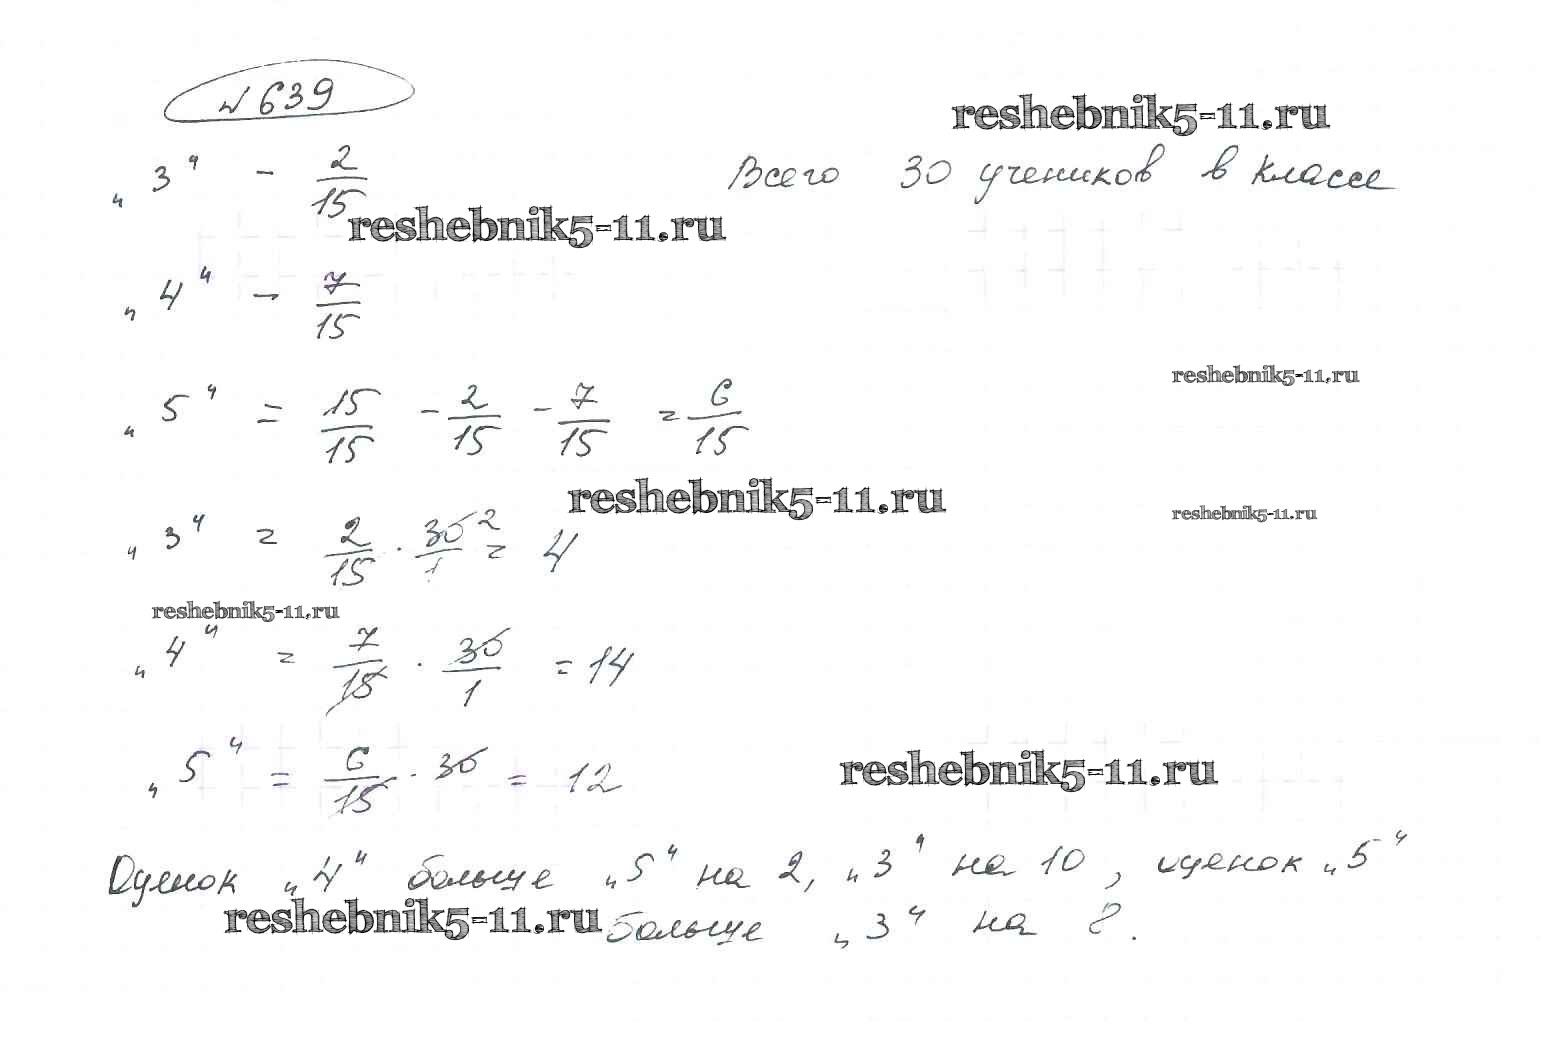 № 639
reshebnik5-11.ru
„3" - 2/15
Всего 30 учеников в классе
reshebnik5-11.ru
„4" - 7/15
reshebnik5-11.ru
„5" = 15/15 - 2/15 - 7/15 = 6/15
reshebnik5-11.ru
reshebnik5-11.ru
„3" = 2/15 · 30/1 2 = 4
reshebnik5-11.ru
„4" = 7/15 · 30/1 = 14
„5" = 6/15 · 30 = 12
reshebnik5-11.ru
Оценок „4" больше „5" на 2, „3" на 10, оценок „5"
reshebnik5-11.ru
больше „3" на 8.